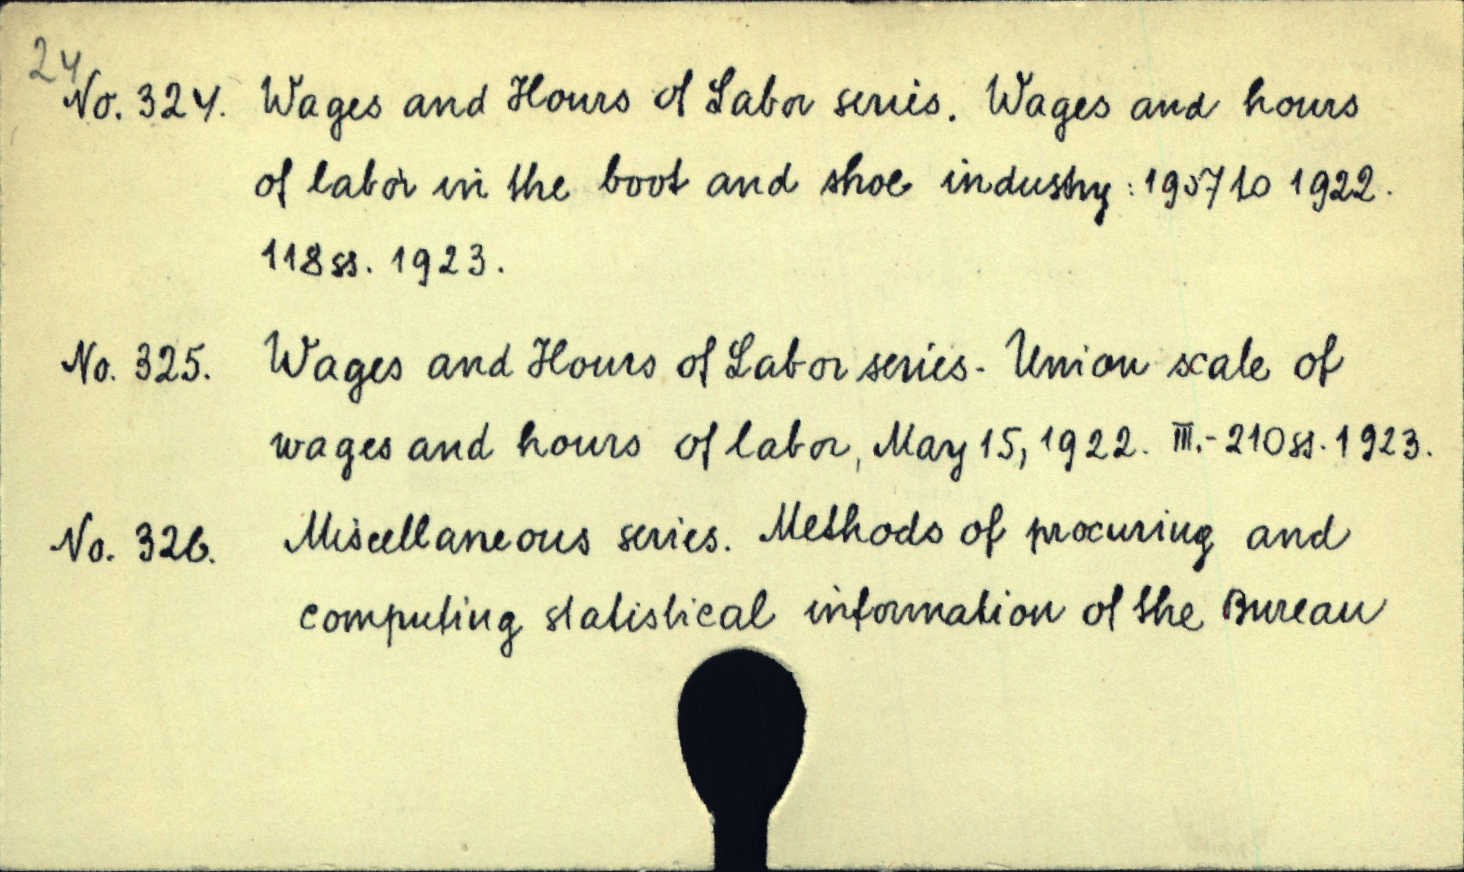 24
No. 324. Wages and Hours of Labor series. Wages and hours
of labor in the boot and shoe industry: 1907 to 1922.
118 ss. 1923.
No. 325. Wages and Hours of Labor series. Union scale of
wages and hours of labor, May 15, 1922. III.-210 ss. 1923.
No. 326. Miscellaneous series. Methods of procuring and
computing statistical information of the Bureau